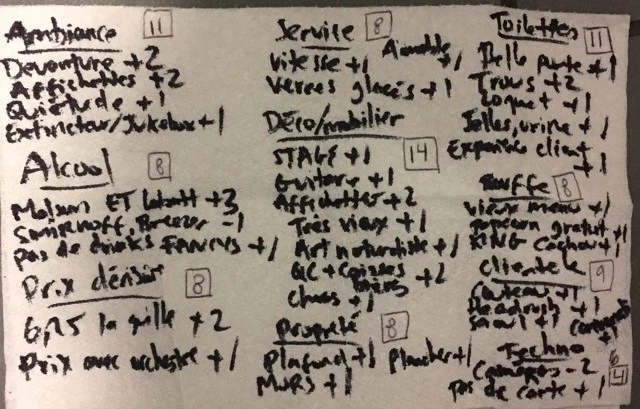 Ambiance 11
Devanture +2
Affichettes +2
Quiétude +1
Extincteur/Jukebox +1
Alcool 8
Molson ET labatt +3
Smirnoff, Breezer -1
pas de drinks FANCYS +1
Prix dérisoir 8
6,25 la quille +2
Prix avec orchestre +1
Service 8
Vitesse +1 Aimable +1
Verres glacés +1
Déco/mobilier 14
STAGE +1
Guitare +1
Affichettes +2
Très vieux +1
Art naturaliste +1
QC + Caisses bières +2
Chaos +1
Propreté 8
Plafond +1 plancher +1
MURS +1
Toilettes 11
Belle porte +1
Trous +2
Loquet +1
Salles, urine +1
client +1
Bouffe 8
Vieux menu +1
Popcorn gratuit +1
KING Cochon +1
Clientèle 9
Couteaux +1
Headrush +1
+1
+1
Techno 6 4
Caméras -2
pas de carte +1